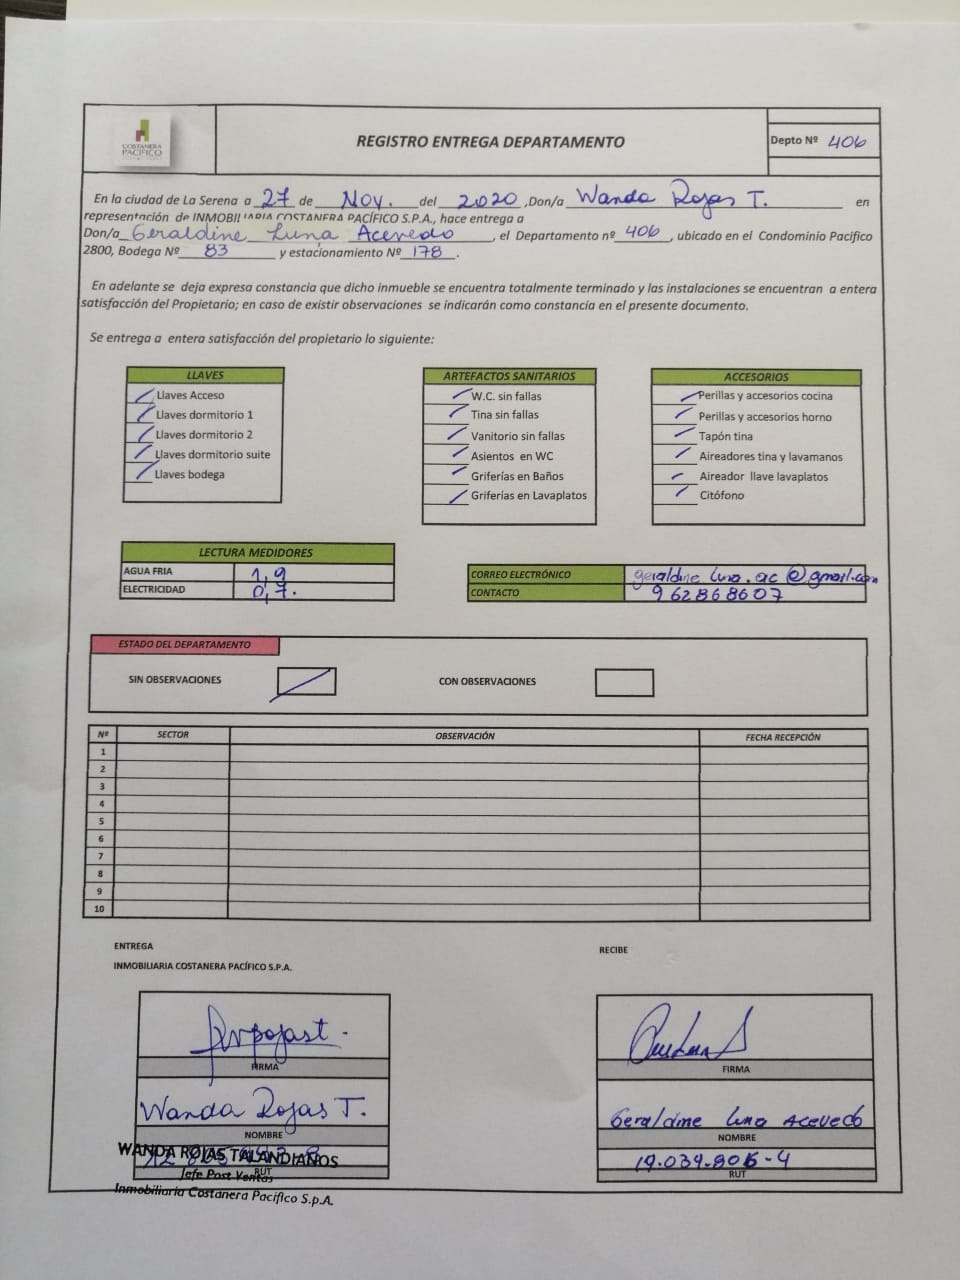 COSTANERA
PACÍFICO
REGISTRO ENTREGA DEPARTAMENTO
Depto Nº 406
En la ciudad de La Serena a 27 de Nov. del 2020 ,Don/a Wanda Rojas T. en
representación de INMOBILIARIA COSTANERA PACÍFICO S.P.A., hace entrega a
Don/a Geraldine Luna Acevedo , el Departamento nº 406 , ubicado en el Condominio Pacifico
2800, Bodega Nº 83 y estacionamiento Nº 178 .
En adelante se deja expresa constancia que dicho inmueble se encuentra totalmente terminado y las instalaciones se encuentran a entera
satisfacción del Propietario; en caso de existir observaciones se indicarán como constancia en el presente documento.
Se entrega a entera satisfacción del propietario lo siguiente:
LLAVES
Llaves Acceso
Llaves dormitorio 1
Llaves dormitorio 2
Llaves dormitorio suite
Llaves bodega
ARTEFACTOS SANITARIOS
W.C. sin fallas
Tina sin fallas
Vanitorio sin fallas
Asientos en WC
Griferías en Baños
Griferías en Lavaplatos
ACCESORIOS
Perillas y accesorios cocina
Perillas y accesorios horno
Tapón tina
Aireadores tina y lavamanos
Aireador llave lavaplatos
Citófono
LECTURA MEDIDORES
AGUA FRIA 1,9
ELECTRICIDAD 0,7.
CORREO ELECTRÓNICO geraldine.luna.ac@gmail.com
CONTACTO 962868607
ESTADO DEL DEPARTAMENTO
SIN OBSERVACIONES
CON OBSERVACIONES
Nº SECTOR OBSERVACIÓN FECHA RECEPCIÓN
1
2
3
4
5
6
7
8
9
10
ENTREGA
INMOBILIARIA COSTANERA PACÍFICO S.P.A.
FIRMA
Wanda Rojas T.
NOMBRE
WANDA ROJAS TALANDIANOS
RUT
Jefe Post Ventas
Inmobiliaria Costanera Pacifico S.p.A.
RECIBE
FIRMA
Geraldine Luna Acevedo
NOMBRE
RUT